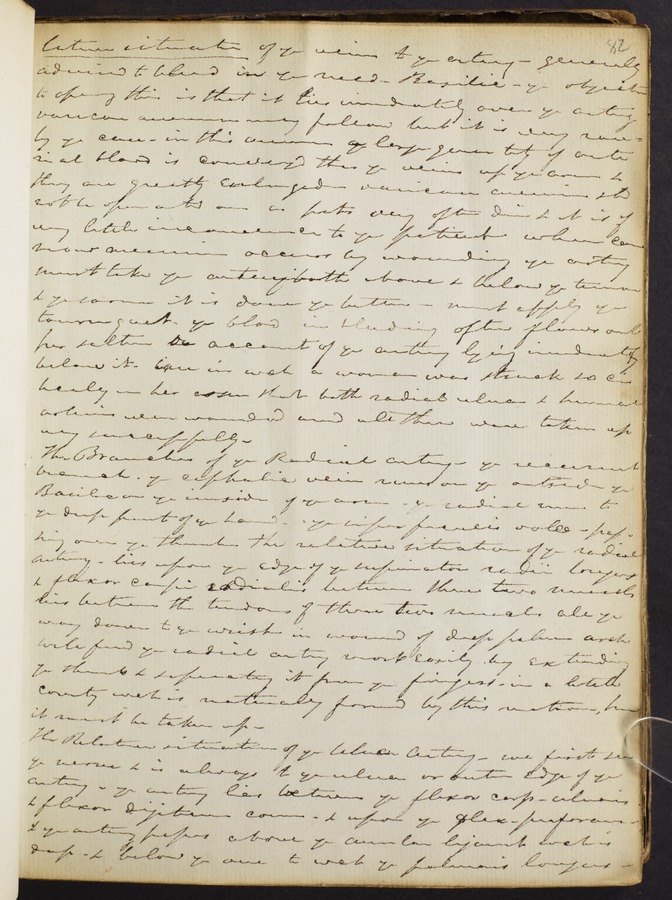 82
situation of ye veins to ye artery - generally
advised to bleed in ye med - Basilic - ye objection
to opening this is that it lies immediately over ye artery
varicose aneurism may follow but it is very rare
ye case - in this aneurism a large quantity of arte
rial blood is convey'd thro ye veins of ye arm &
they are greatly enlarged varicose aneurism
very little inconvenience to ye patient when
aneurism occurs by wounding ye artery
must take ye artery both above & below ye tumour
& ye sooner it is done ye better - must apply ye
tourniquet - ye blood in bleeding often flows out
per saltum account of ye artery lying immediately
below it case in wch a woman was struck so
in her arm that both radial ulnar & humeral
arteries were wounded and all three were taken up
very successfully -
The Branches of ye Radial artery - ye recurrent
branch - ye cephalic vein runs on ye outside ye
Basilic on ye inside of ye arm - ye radial runs to
ye deep part of ye hand - ye superficialis volæ -
over ye thumb The relative situation of ye radial
artery - lies upon ye edge of ye supinator radii longus
& flexor carpi radialis between these two muscles
lies between the tendons of these two muscles all ye
way down to ye wrist in wound of deep palmar arch
will find ye radial artery most easily by extending
ye thumb & separating it from ye fingers - in a little
cavity wch is naturally formed by this motion, here
it must be taken up -
The Relative situation of ye Ulnar Artery - we first see
ye nerve & is always to ye ulnar or outer edge of ye
artery - ye artery lies between ye flexor carp - ulnaris
& flexor digitum com - & upon ye flex - perforans -
& ye artery passes above ye annular ligament wch is
deep - & below ye one to wch ye palmaris longus -